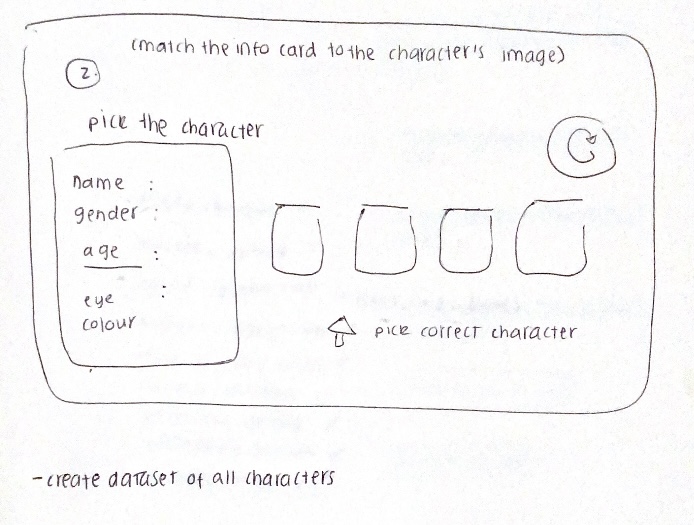 (match the info card to the character's image)
2.
pick the character
name :
gender :
age :
eye :
colour
pick correct character
- create dataset of all characters